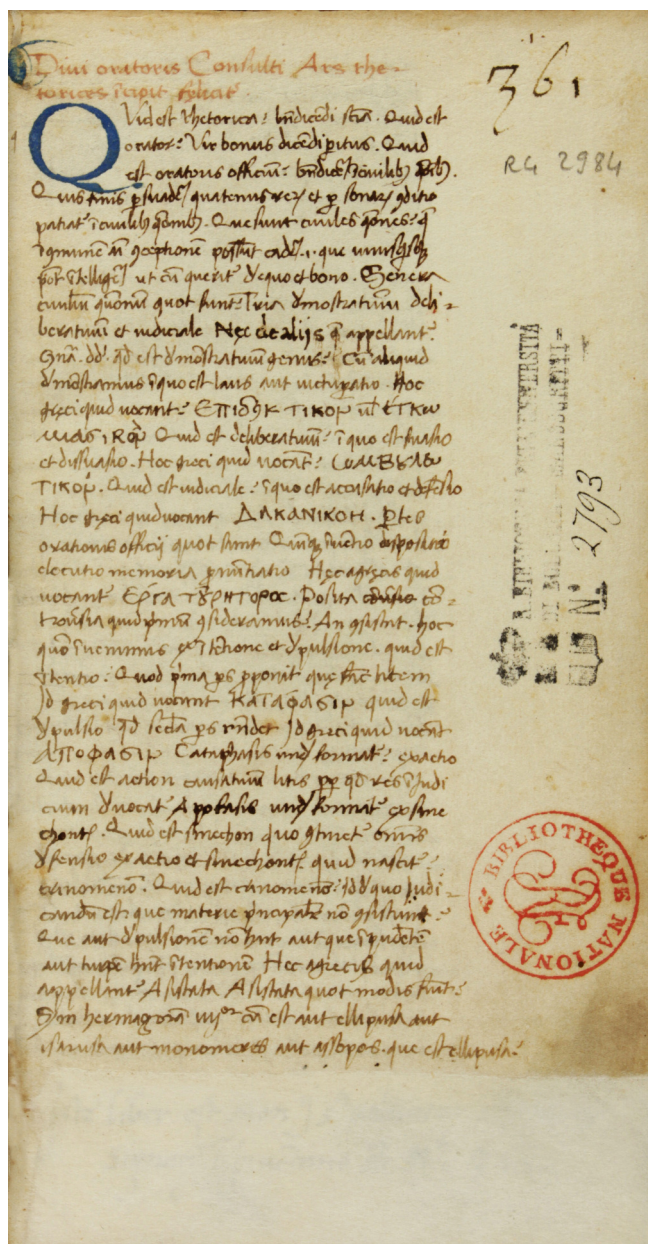 Diui oratoris Consulti Ars rhe-
torices īcipit feliciť
Quid est rhetorica? bn̄dicendi sciā. Quid est
orator? Vir bonus dicendi p̄itus. Quid
est oratoris officium? bn̄ dicēr̄ ī ciuilib; q̄oib;.
Quis finis p̄suadēr̄ quatenus rerz et p̄sonarz ɔditio
patiať ī ciuilib; q̄onib;. Que sunt ciuiles q̄ones? q̄
ī ɔmunem aī ɔceptionem possunt cadēr̄ .i. que unusq̄sq;
põt ītelligēr̄ ut cū queriť de equo et bono. Genera
ciuiliū quonū quot sunt? Tria demōstratiuū deli-
beratiuū et iudiciale Nec de aliis q̄ appellanť?
qd̄ est demōstratiuū genus? Cū aliquid
demōstramus ī quo est laus aut uictupatio. Hoc
greci quid uocant? ΕΠΙ
Quid est deliberatiuū? ī quo est suasio
et dissuasio. Hoc greci quid uocāt?
ΤΙΚΟΝ. Quid est iudiciale? ī quo est accusatio et defēsio
Hoc greci quid uocant ΔΑΚΑΝΙΚΟΗ. p̄tes
orationis officij quot sunt Quinq; īuētio dispositio
elocutio memoria p̄nūtiatio Hec a grecis quid
uocanť ΕΡΓΑ ΤΟΥ ΡΗΤΟΡΟΣ. Posita cō-
trouersia quid p̄mū ɔsideramus? An ɔsistat. hoc
quō īuenimus ex ītētione et depulsione. quid est
ītentio? Quod p̄ma p̄s p̄ponit que facit litem
Id greci quid uocant ΚΑΤΑΦΑΣΙΝ quid est
depulsio qd̄ secūda p̄s rn̄det Id greci quid uocāt
ΑΠΟΦΑΣΙΝ Cataphasis unde formať? ex actio
Quid est action causatiuū litis pp̄ qd̄ res ī iudi
cium deuocať Apophasis unde formať ex sine
chont̄. Quid est sinechon quo ɔtineť omīs
defensio ex actio et sinechont̄ quid nasciť?
crinomenō. Quid est crinomenō? Id de quo iudi-
candū est? que materie p̄ncipalr̄ nō ɔsistunt?
Que aut depulsionem nō hn̄t aut que īpudētē
aut turpē hn̄t ītentionem Hec a grecis quid
appellanť Asistata Asistata quot modis fiunt?
Sm̄ hermagorā iiijor cū est aut ellipusa aut
isazusa aut monomeres aut assopos. que est ellipusa?
361
RG 2984
N.º 2793
BIBLIOTHEQUE NATIONALE